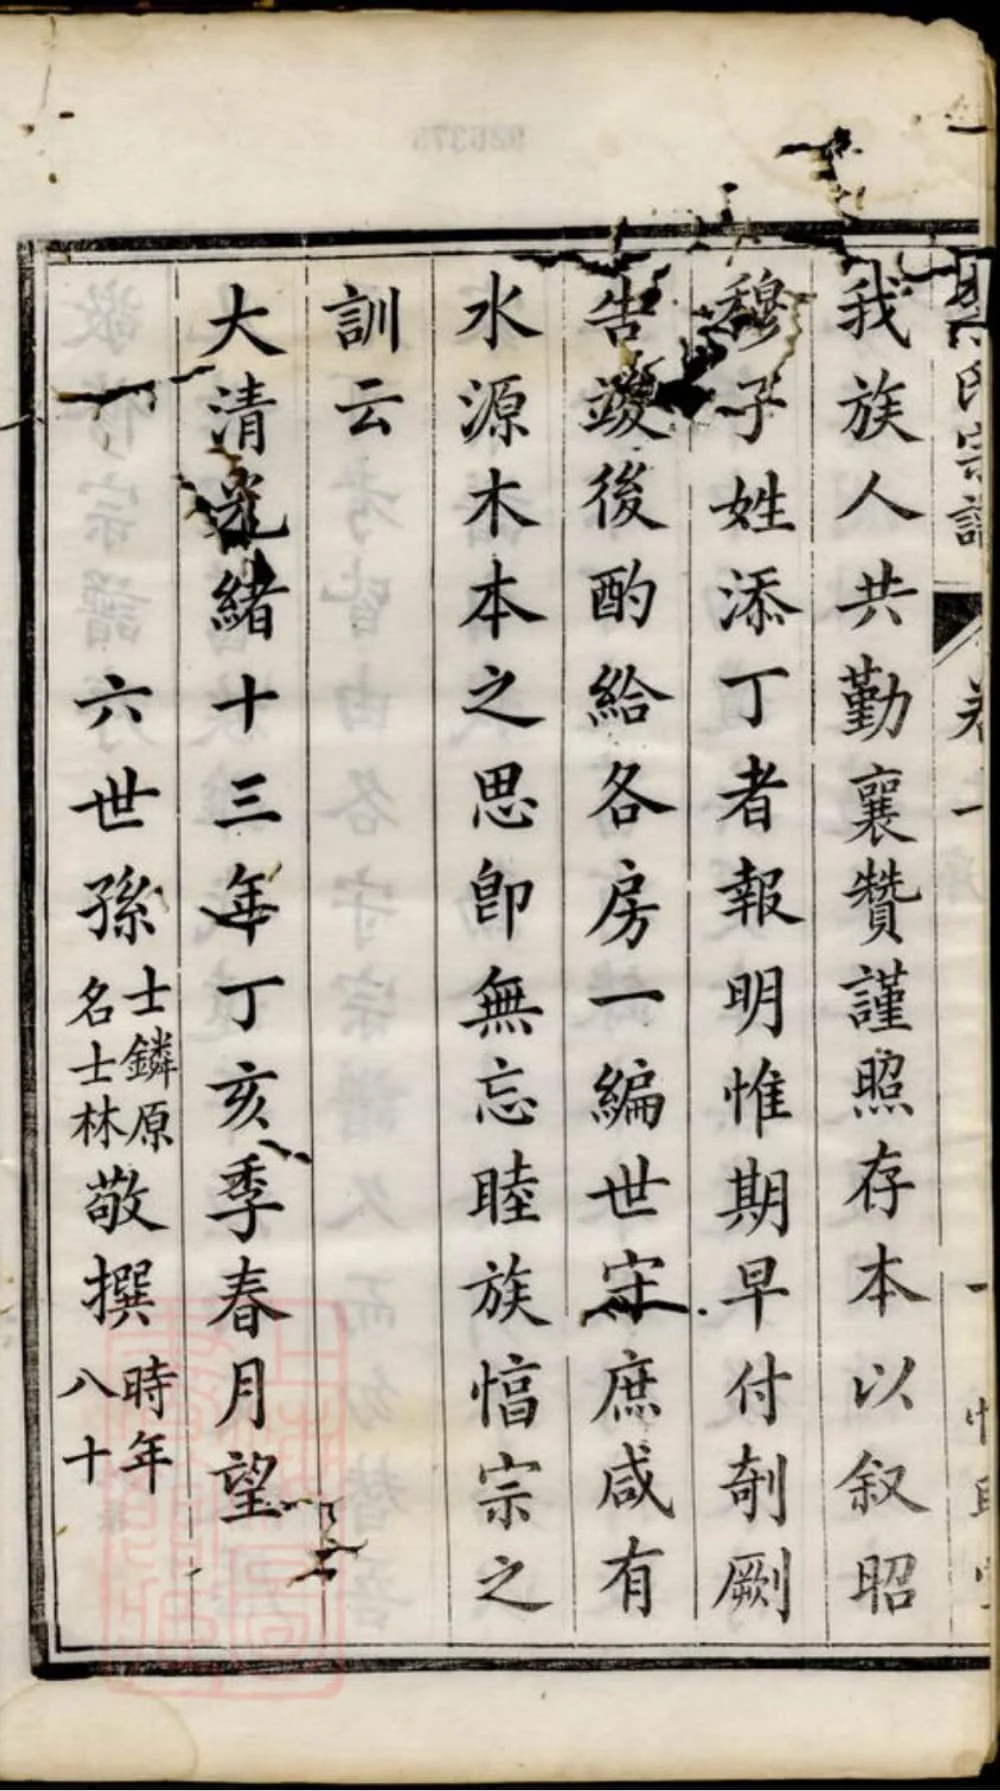 氏宗譜
我族人共勤襄贊謹照存本以叙昭
穆子姓添丁者報明惟期早付剞劂
告竣後酌給各房一編世守庶咸有
水源木本之思卽無忘睦族惇宗之
訓云
大清光緒十三年丁亥季春月望
六世孫士鏻原名士林敬撰時年八十